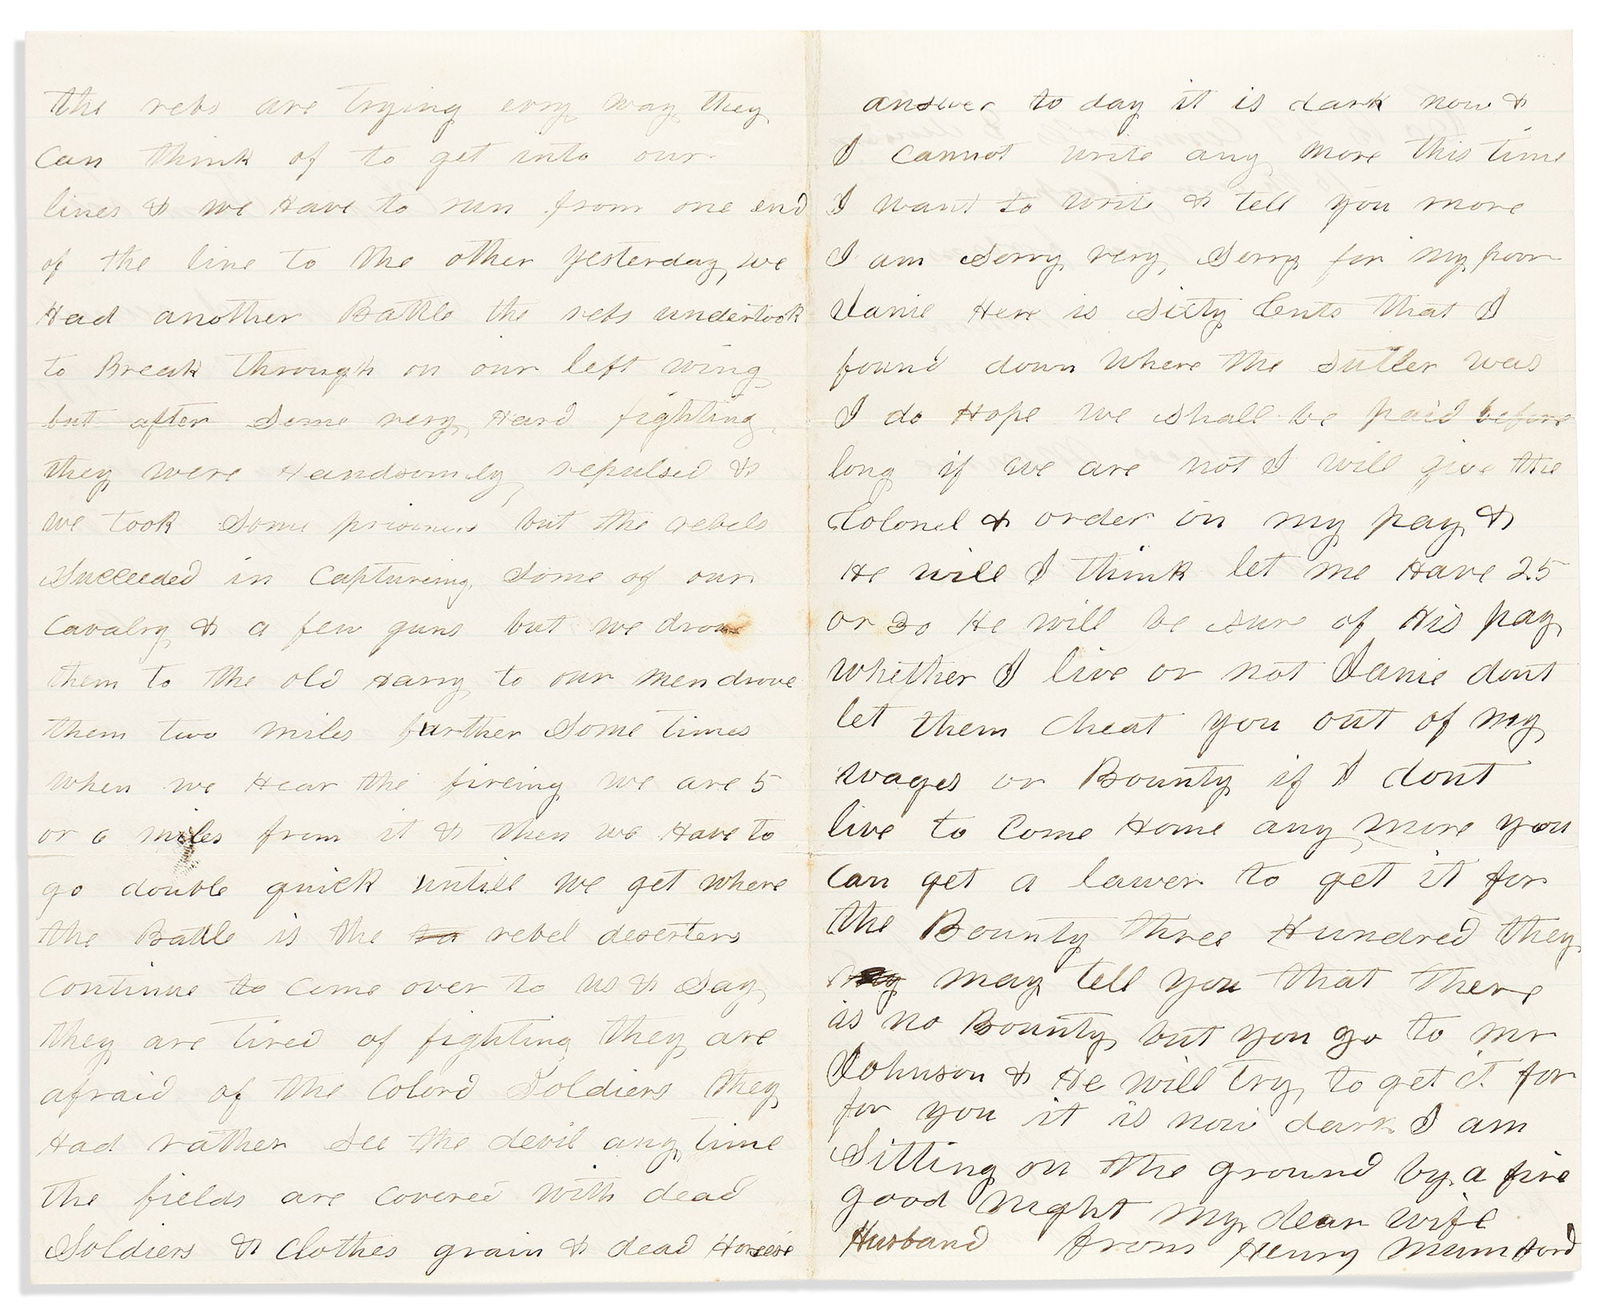 the rebs are trying evry way they
can think of to get into our
lines & we Have to run from one end
of the line to the other yesterday we
Had another Battle the rebs undertook
to Break through on our left wing
but after Some very Hard fighting
they were Handsomly repulsed &
we took Some prisoners but the rebels
Succeeded in Captureing Some of our
Cavalry & a few guns but we drove
them to the old Harry to our men drove
them two miles further Some times
when we Hear the fireing we are 5
or 6 miles from it & then we Have to
go double quick untill we get where
the Battle is the rebel deserters
continue to come over to us & Say
they are tired of fighting they are
afraid of the Colord Soldiers they
Had rather See the devil any time
the fields are covered with dead
Soldiers & Clothes grain & dead Horses
answer to day it is dark now &
I cannot write any more this time
I want to write & tell you more
I am Sorry very Sorry for my poor
Janie Here is Sixty Cents that I
found down where the Sutler was
I do Hope we shall be paid before
long if we are not I will give the
Colonel & order on my pay &
He will I think let me Have 25
or 30 He will be sure of His pay
whether I live or not Janie dont
let them cheat you out of my
wages or Bounty if I dont
live to Come Home any more you
can get a lawer to get it for
the Bounty three Hundred they
may tell you that there
is no Bounty but you go to mr
Johnson & He will try to get it for
for you it is now dark I am
Sitting on the ground by a fire
good Night my dear wife
Husband from Henry Mumford